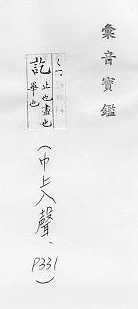 彙音寶鑑
訖
止也盡也
畢也
(巾上入聲、
P331)